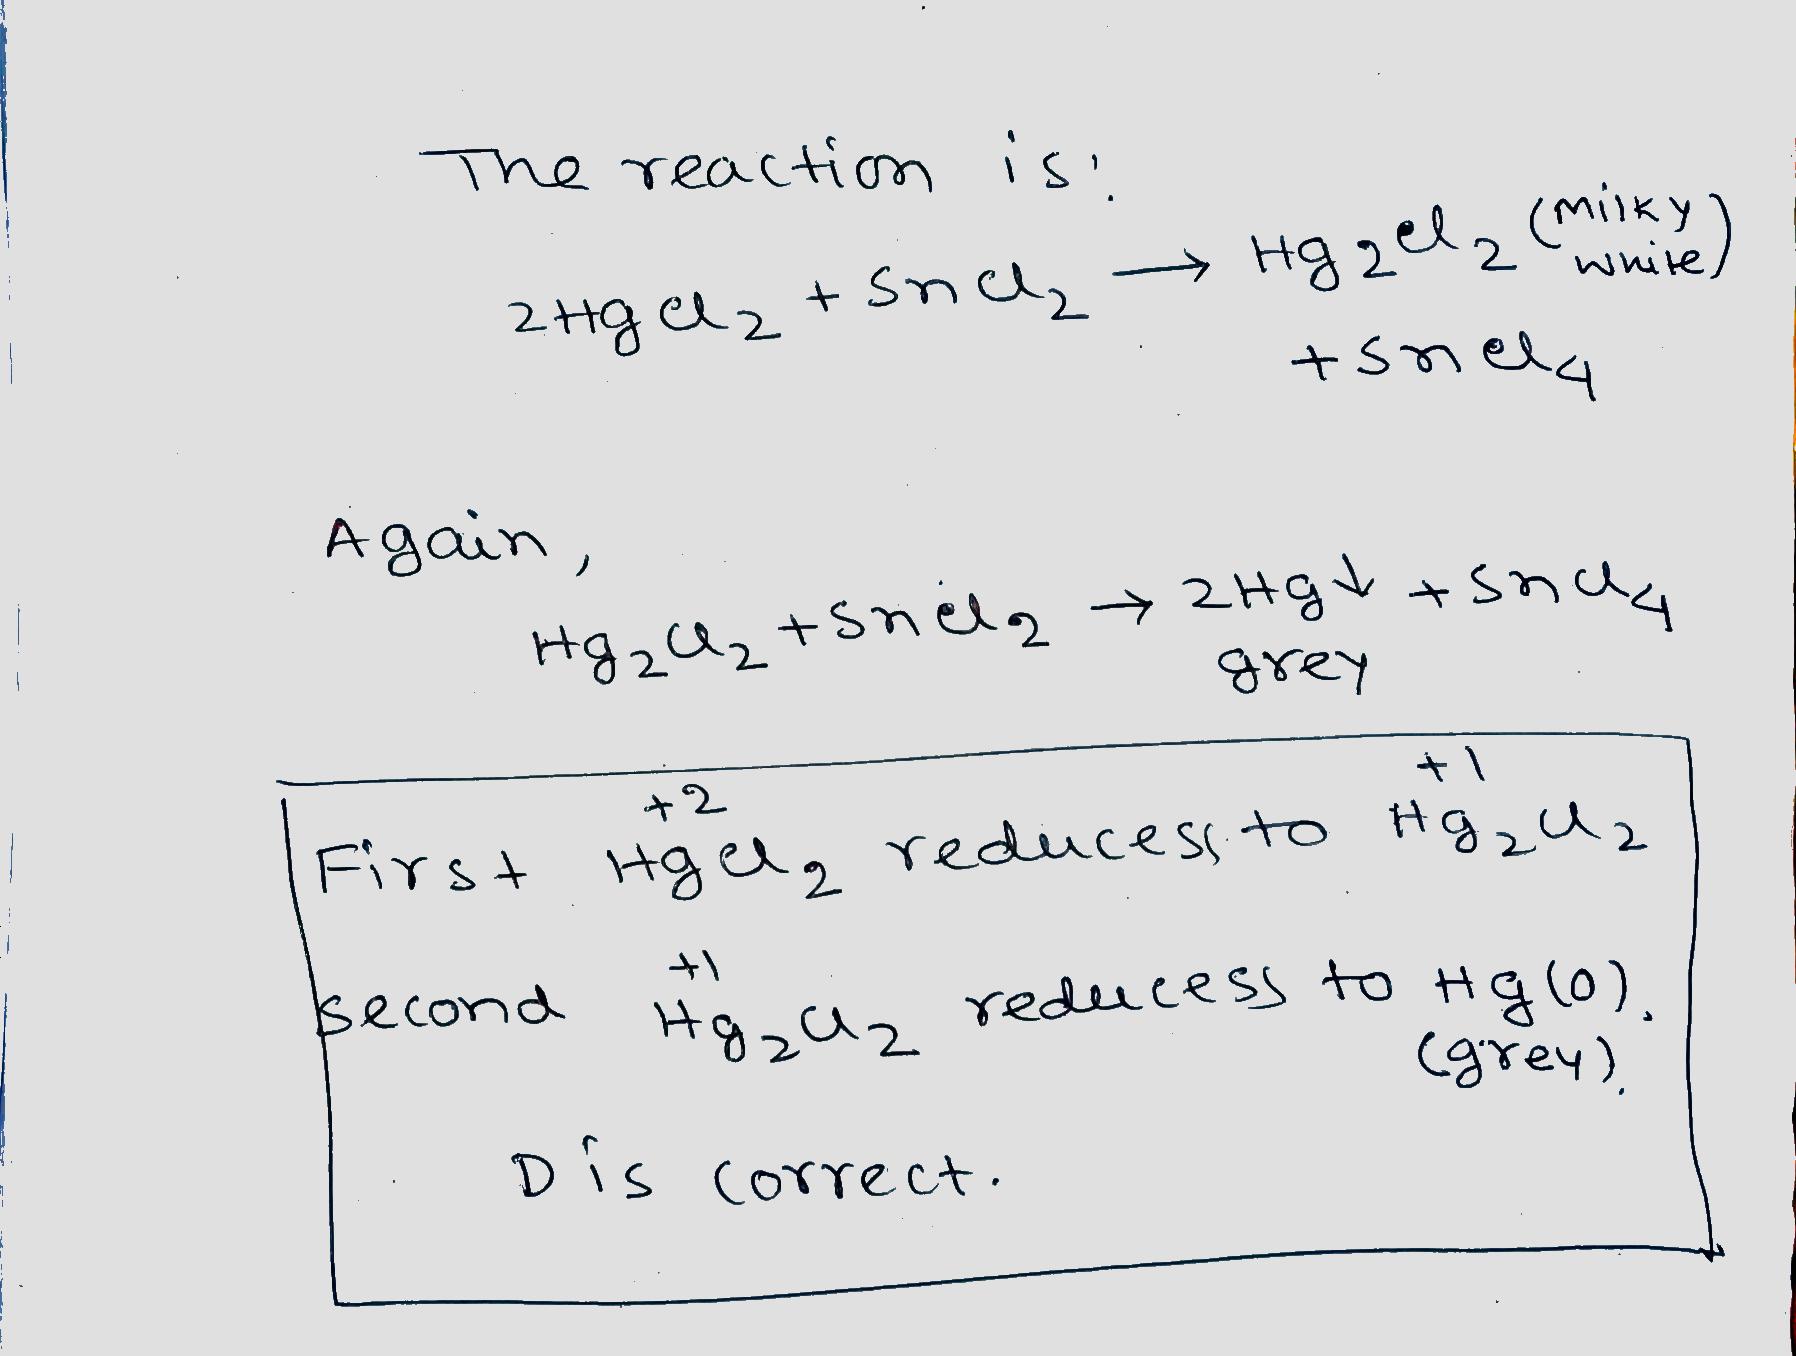 The reaction is:
2HgCl2 + SnCl2 → Hg2Cl2 (Milky white)
+ SnCl4
Again,
Hg2Cl2 + SnCl2 → 2Hg↓ + SnCl4
grey
+2 +1
First HgCl2 reducess to Hg2Cl2
+1
second Hg2Cl2 reducess to Hg(0).
(grey).
D is correct.